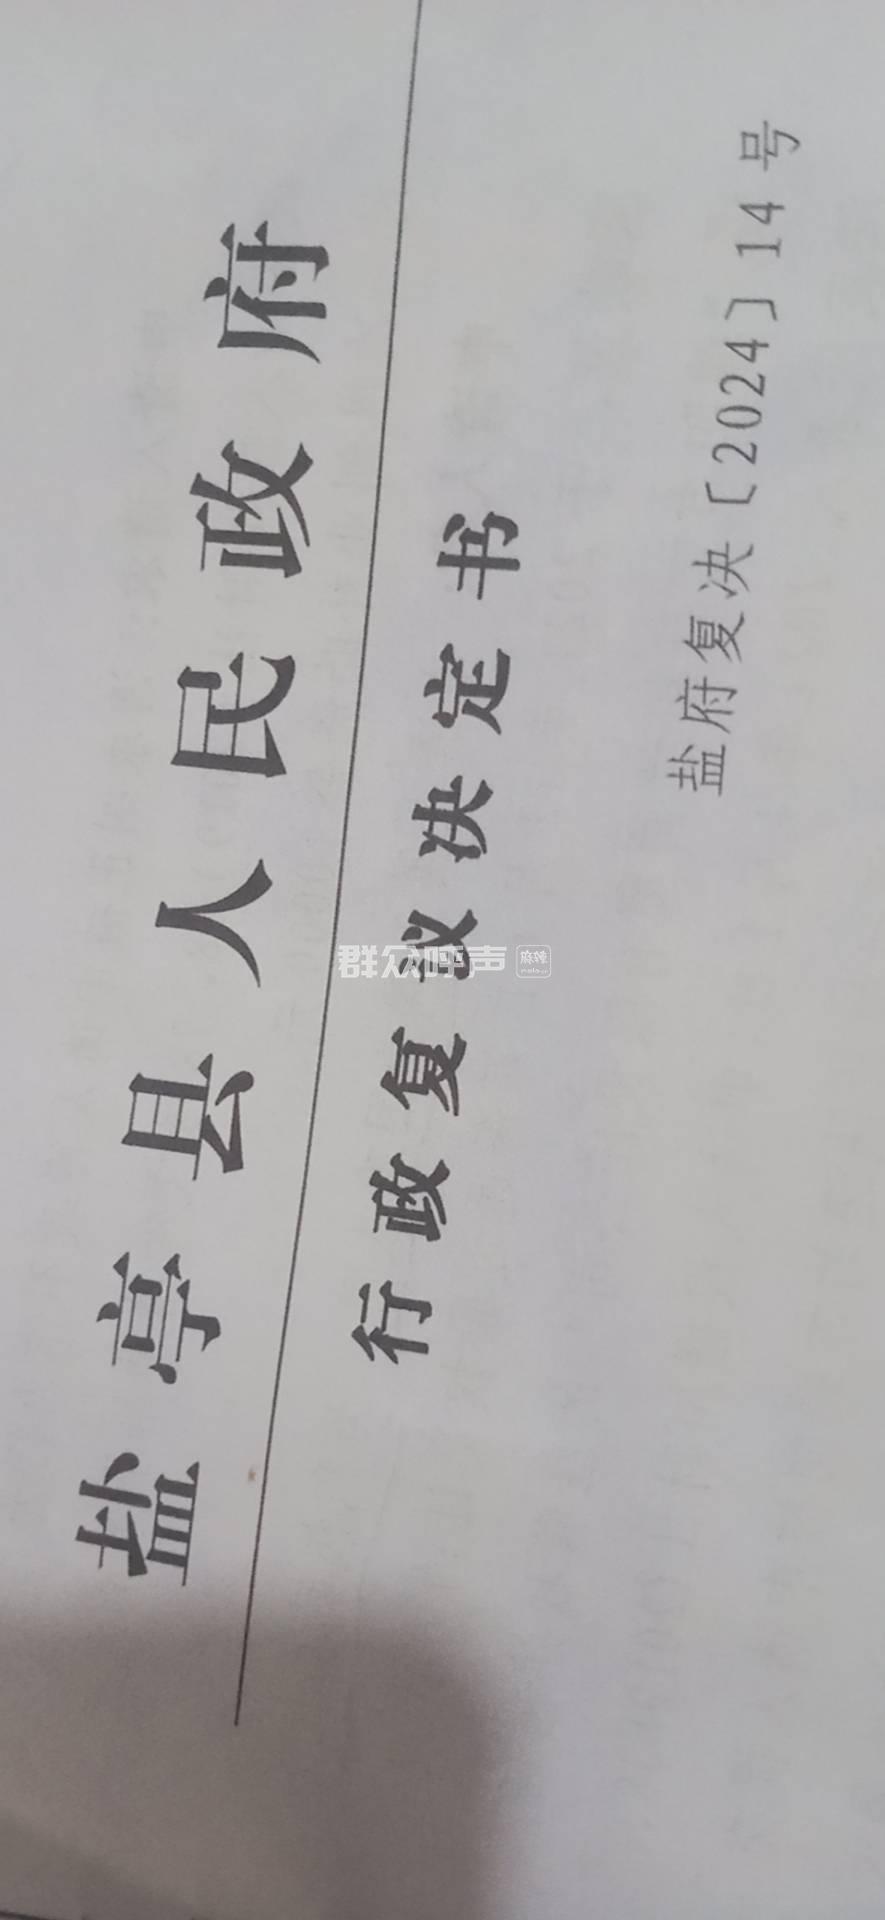 盐亭县人民政府
行政复议决定书
盐府复决〔2024〕14号
群众呼声
麻辣
mala.cn